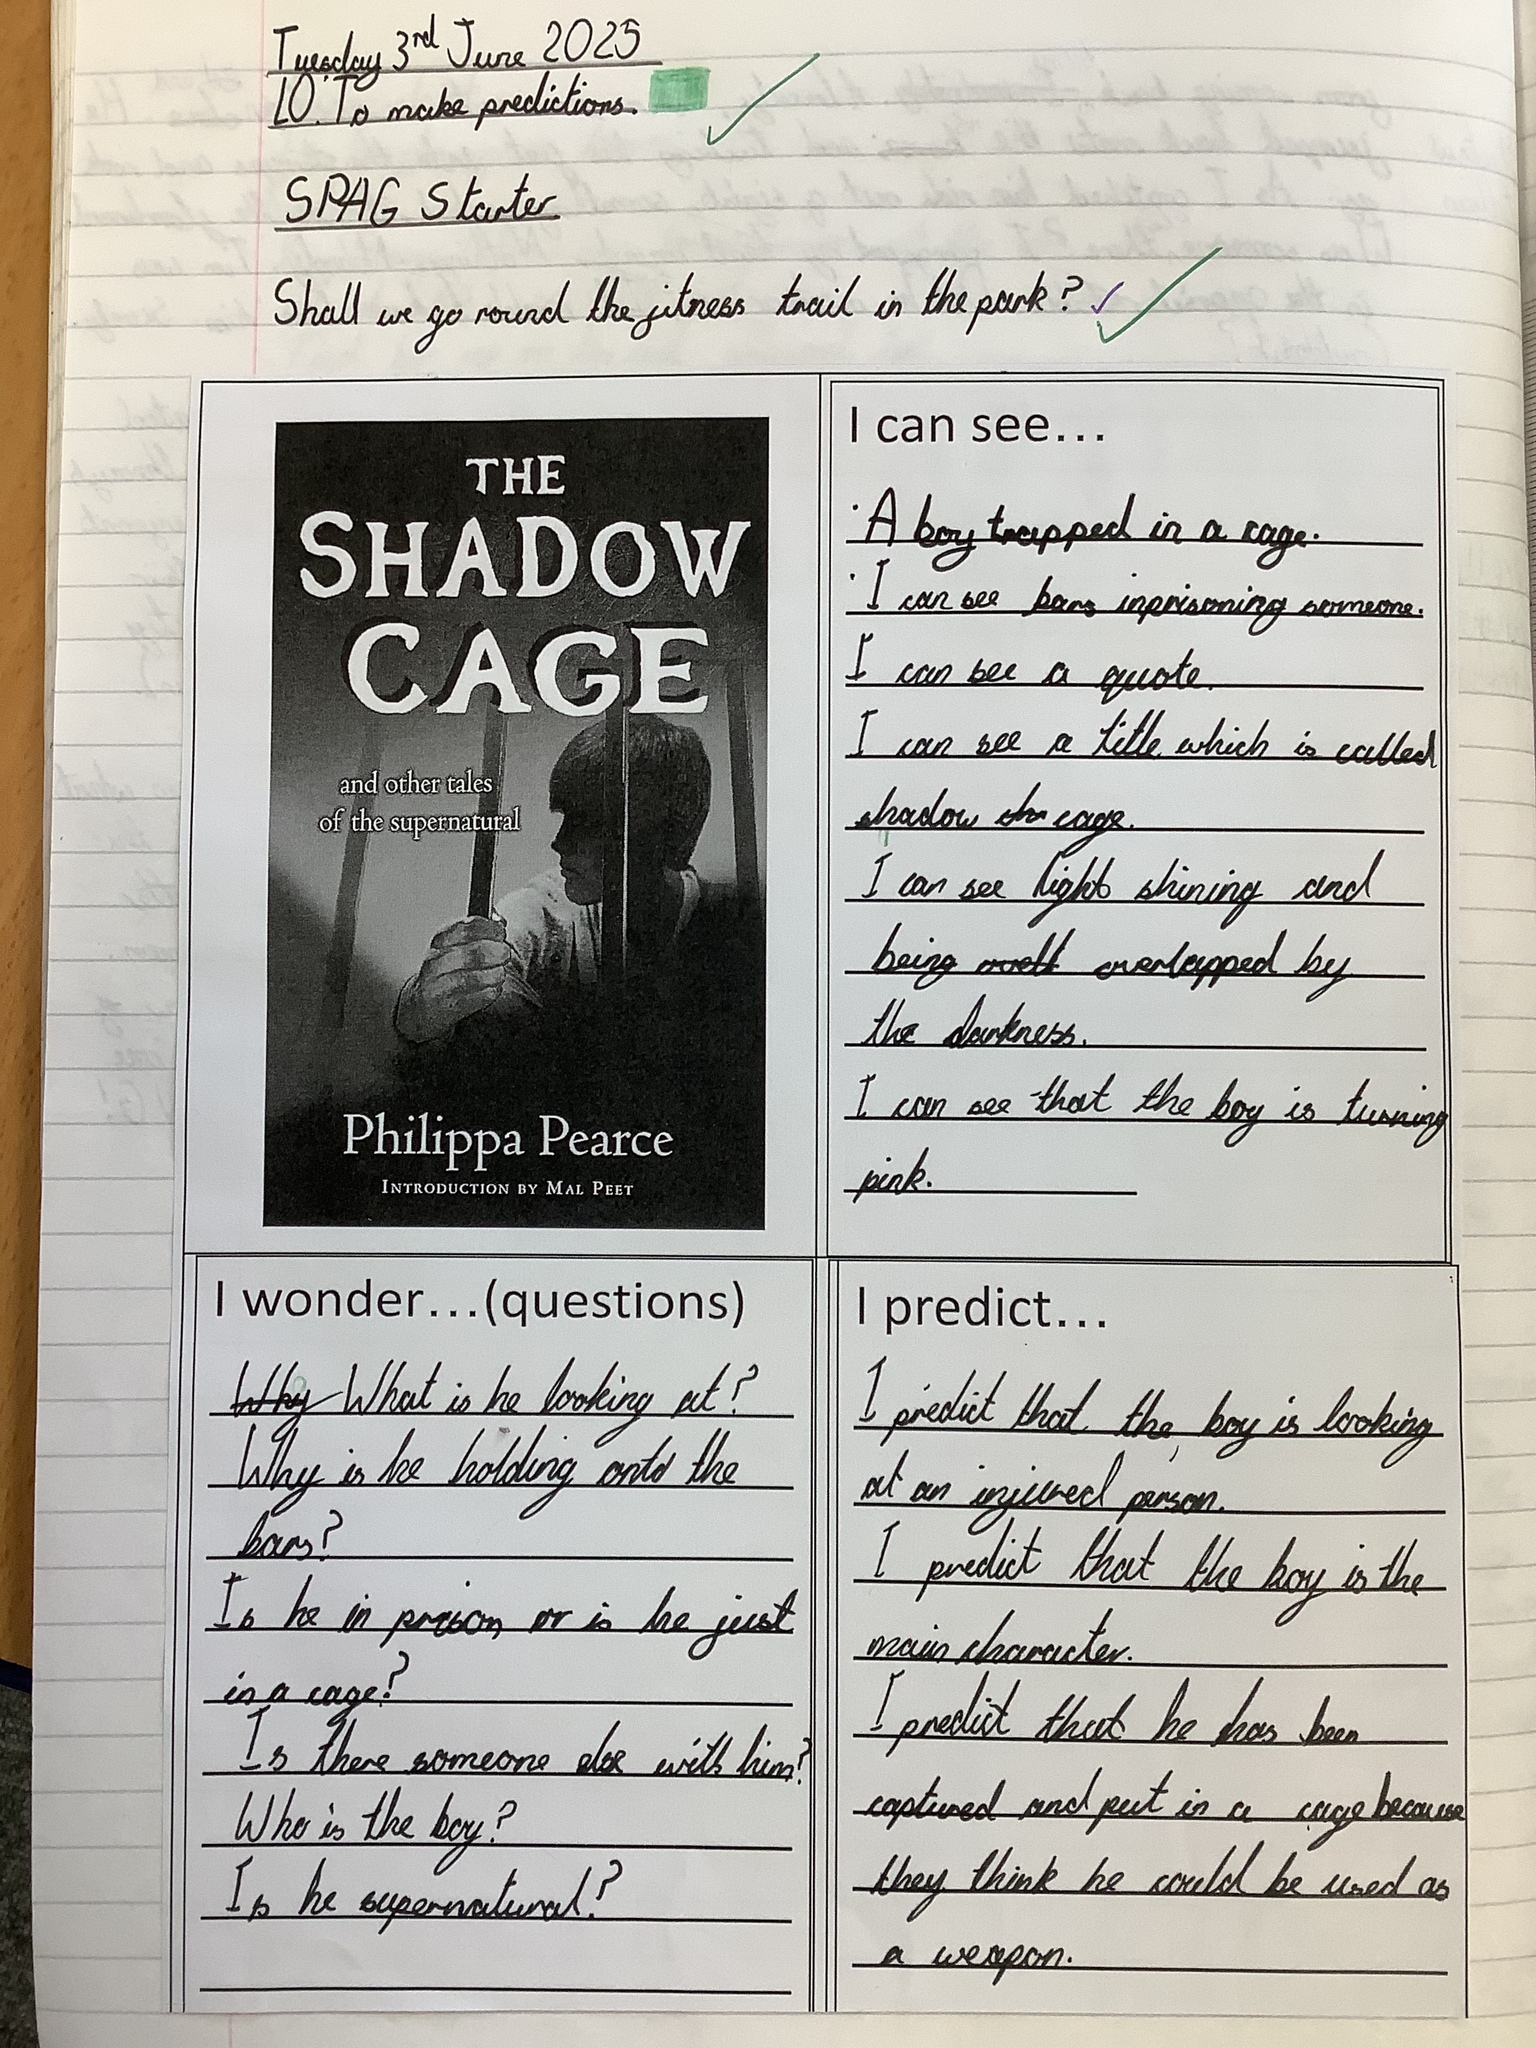 Tuesday 3rd June 2025
LO: To make predictions.
SPAG Starter
Shall we go round the fitness trail in the park?
THE
SHADOW
CAGE
and other tales
of the supernatural
Philippa Pearce
INTRODUCTION BY MAL PEET
I can see...
· A boy trapped in a cage.
· I can see bars inprisoning someone.
I can see a quote.
I can see a title which is called
shadow the cage.
I can see light shining and
being overlapped by
the darkness.
I can see that the boy is turning
pink.
I wonder...(questions)
Why What is he looking at?
Why is he holding onto the
bars?
Is he in prison or is he just
in a cage?
Is there someone else with him?
Who is the boy?
Is he supernatural?
I predict...
I predict that the boy is looking
at an injured person.
I predict that the boy is the
main character.
I predict that he has been
captured and put in a cage because
they think he could be used as
a weapon.